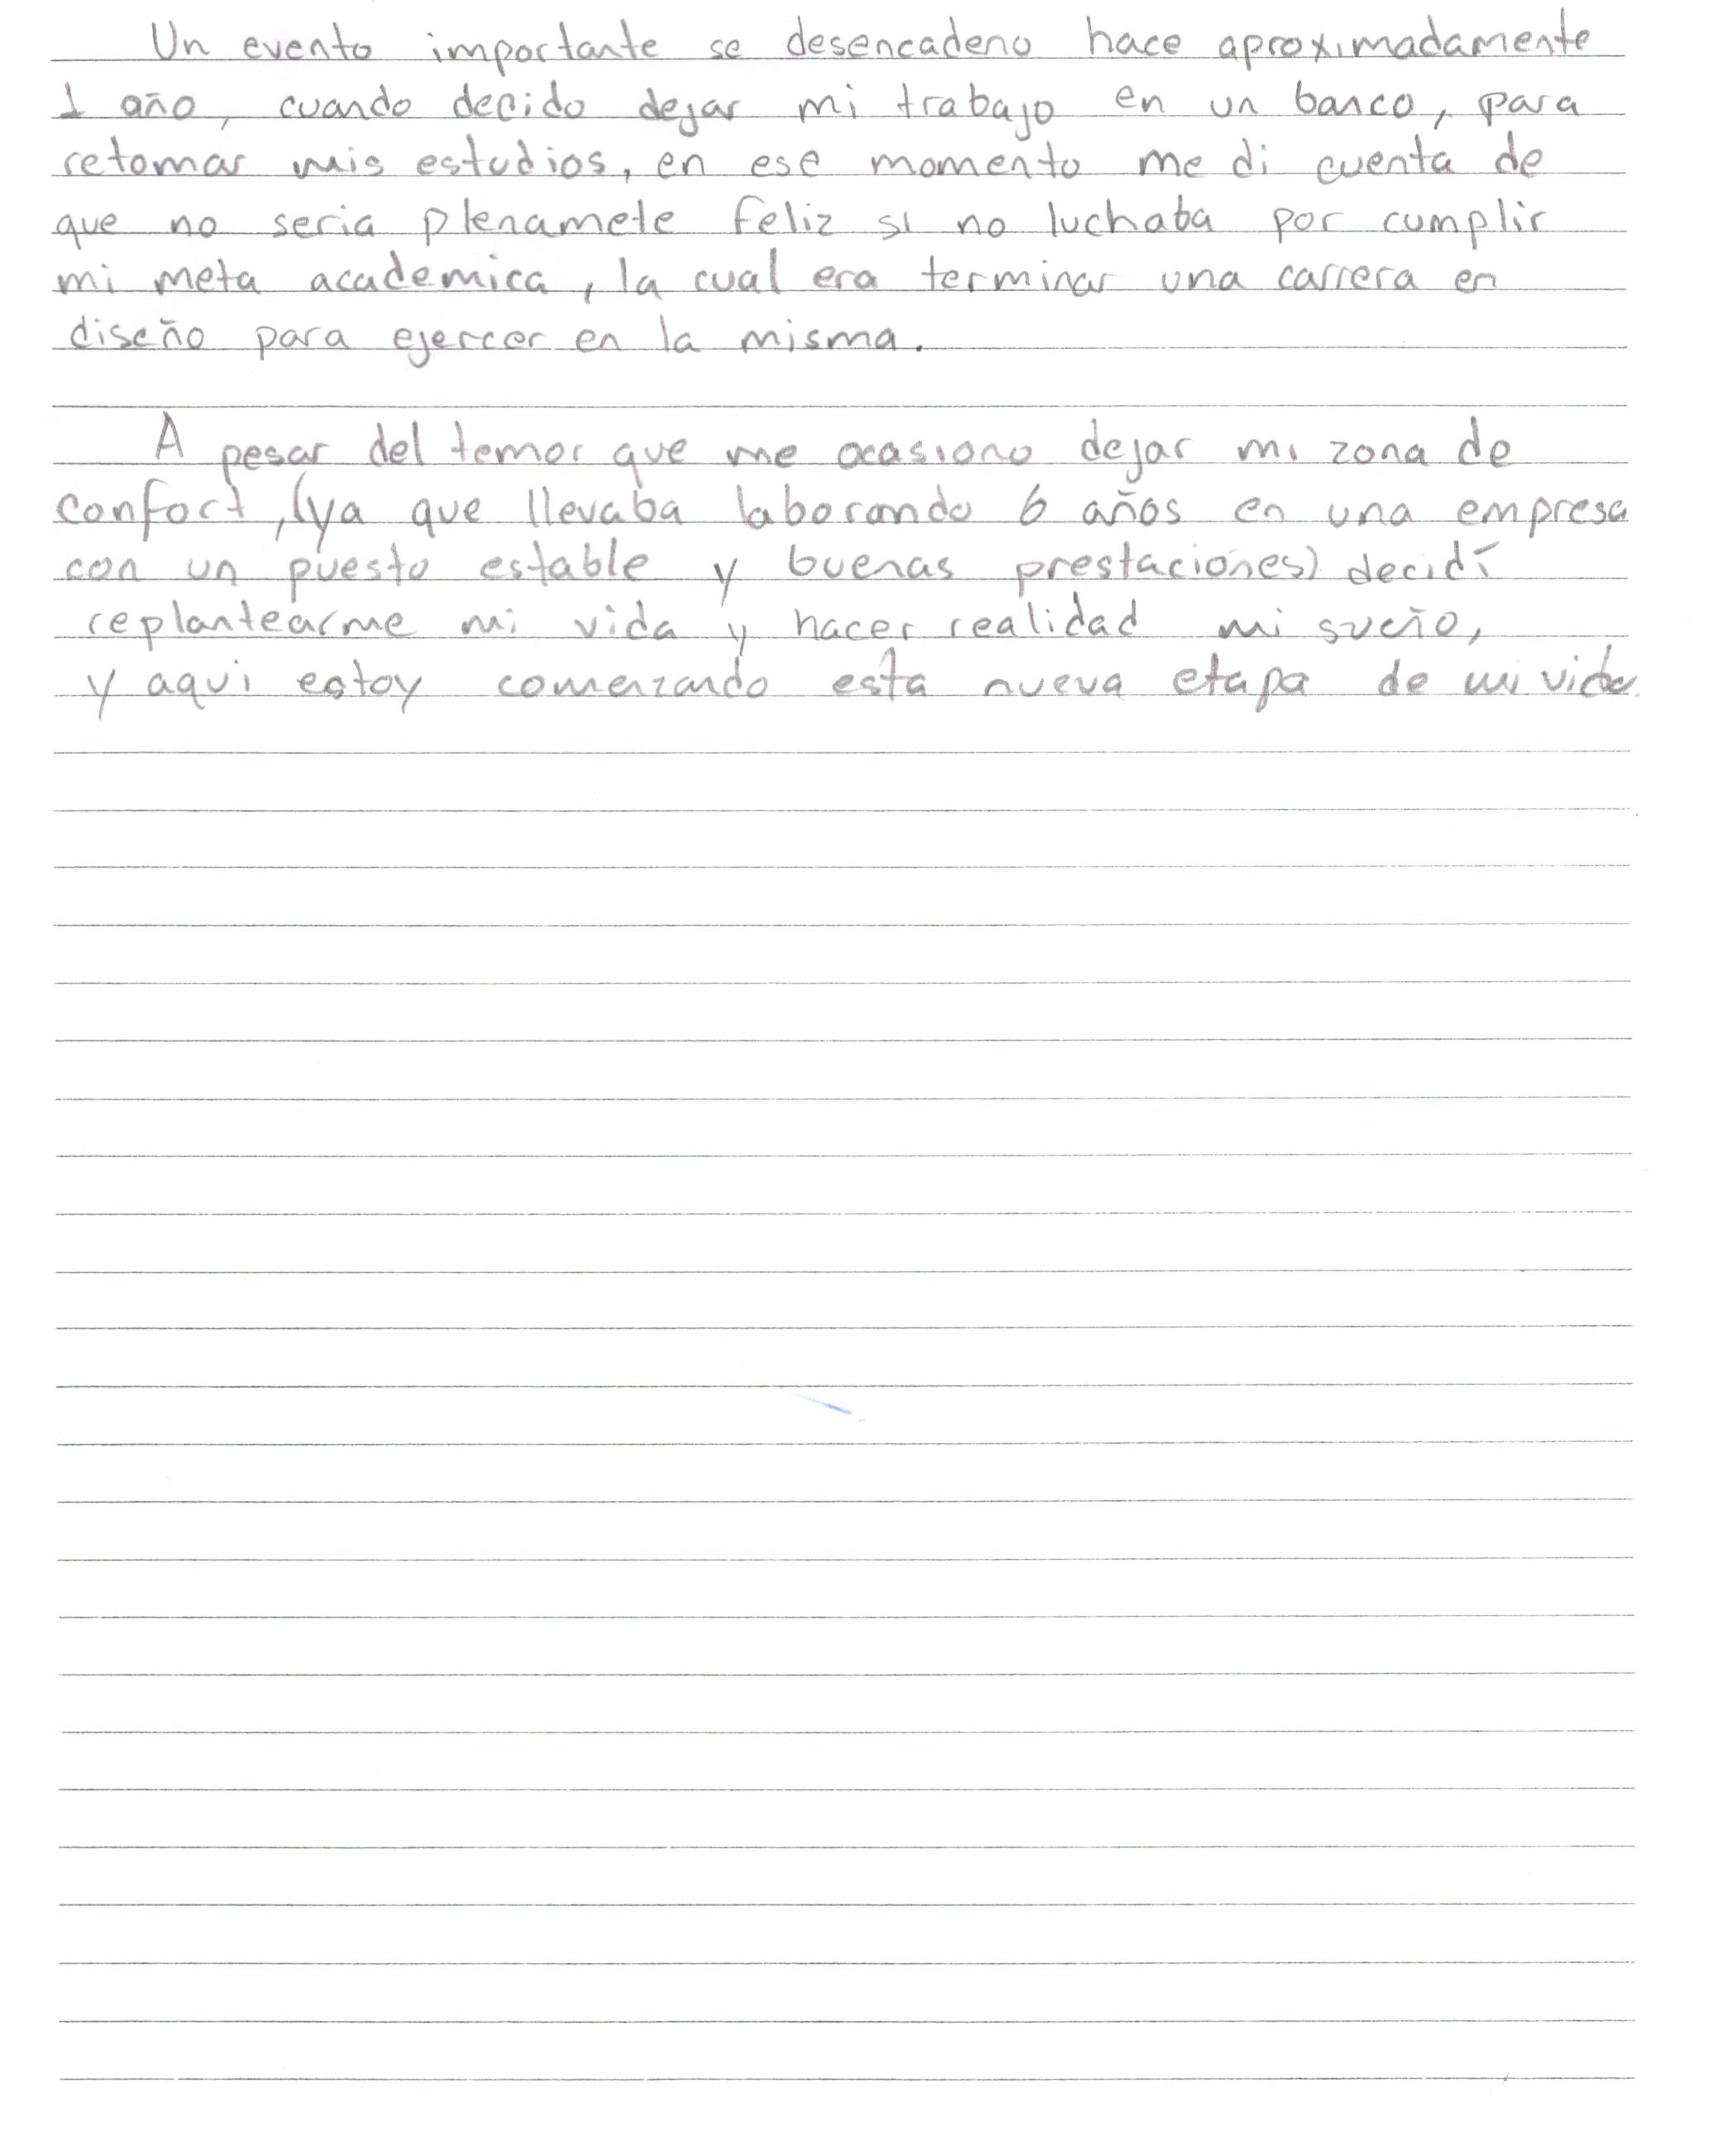 Un evento importante se desencadeno hace aproximadamente
1 año, cuando decido dejar mi trabajo en un banco, para
retomar mis estudios, en ese momento me di cuenta de
que no seria plenamete feliz si no luchaba por cumplir
mi meta academica, la cual era terminar una carrera en
diseño para ejercer en la misma.
A pesar del temor que me ocasiono dejar mi zona de
confort, (ya que llevaba laborando 6 años en una empresa
con un puesto estable y buenas prestaciones) decidí
replantearme mi vida y hacer realidad mi sueño,
y aqui estoy comenzando esta nueva etapa de mi vida.